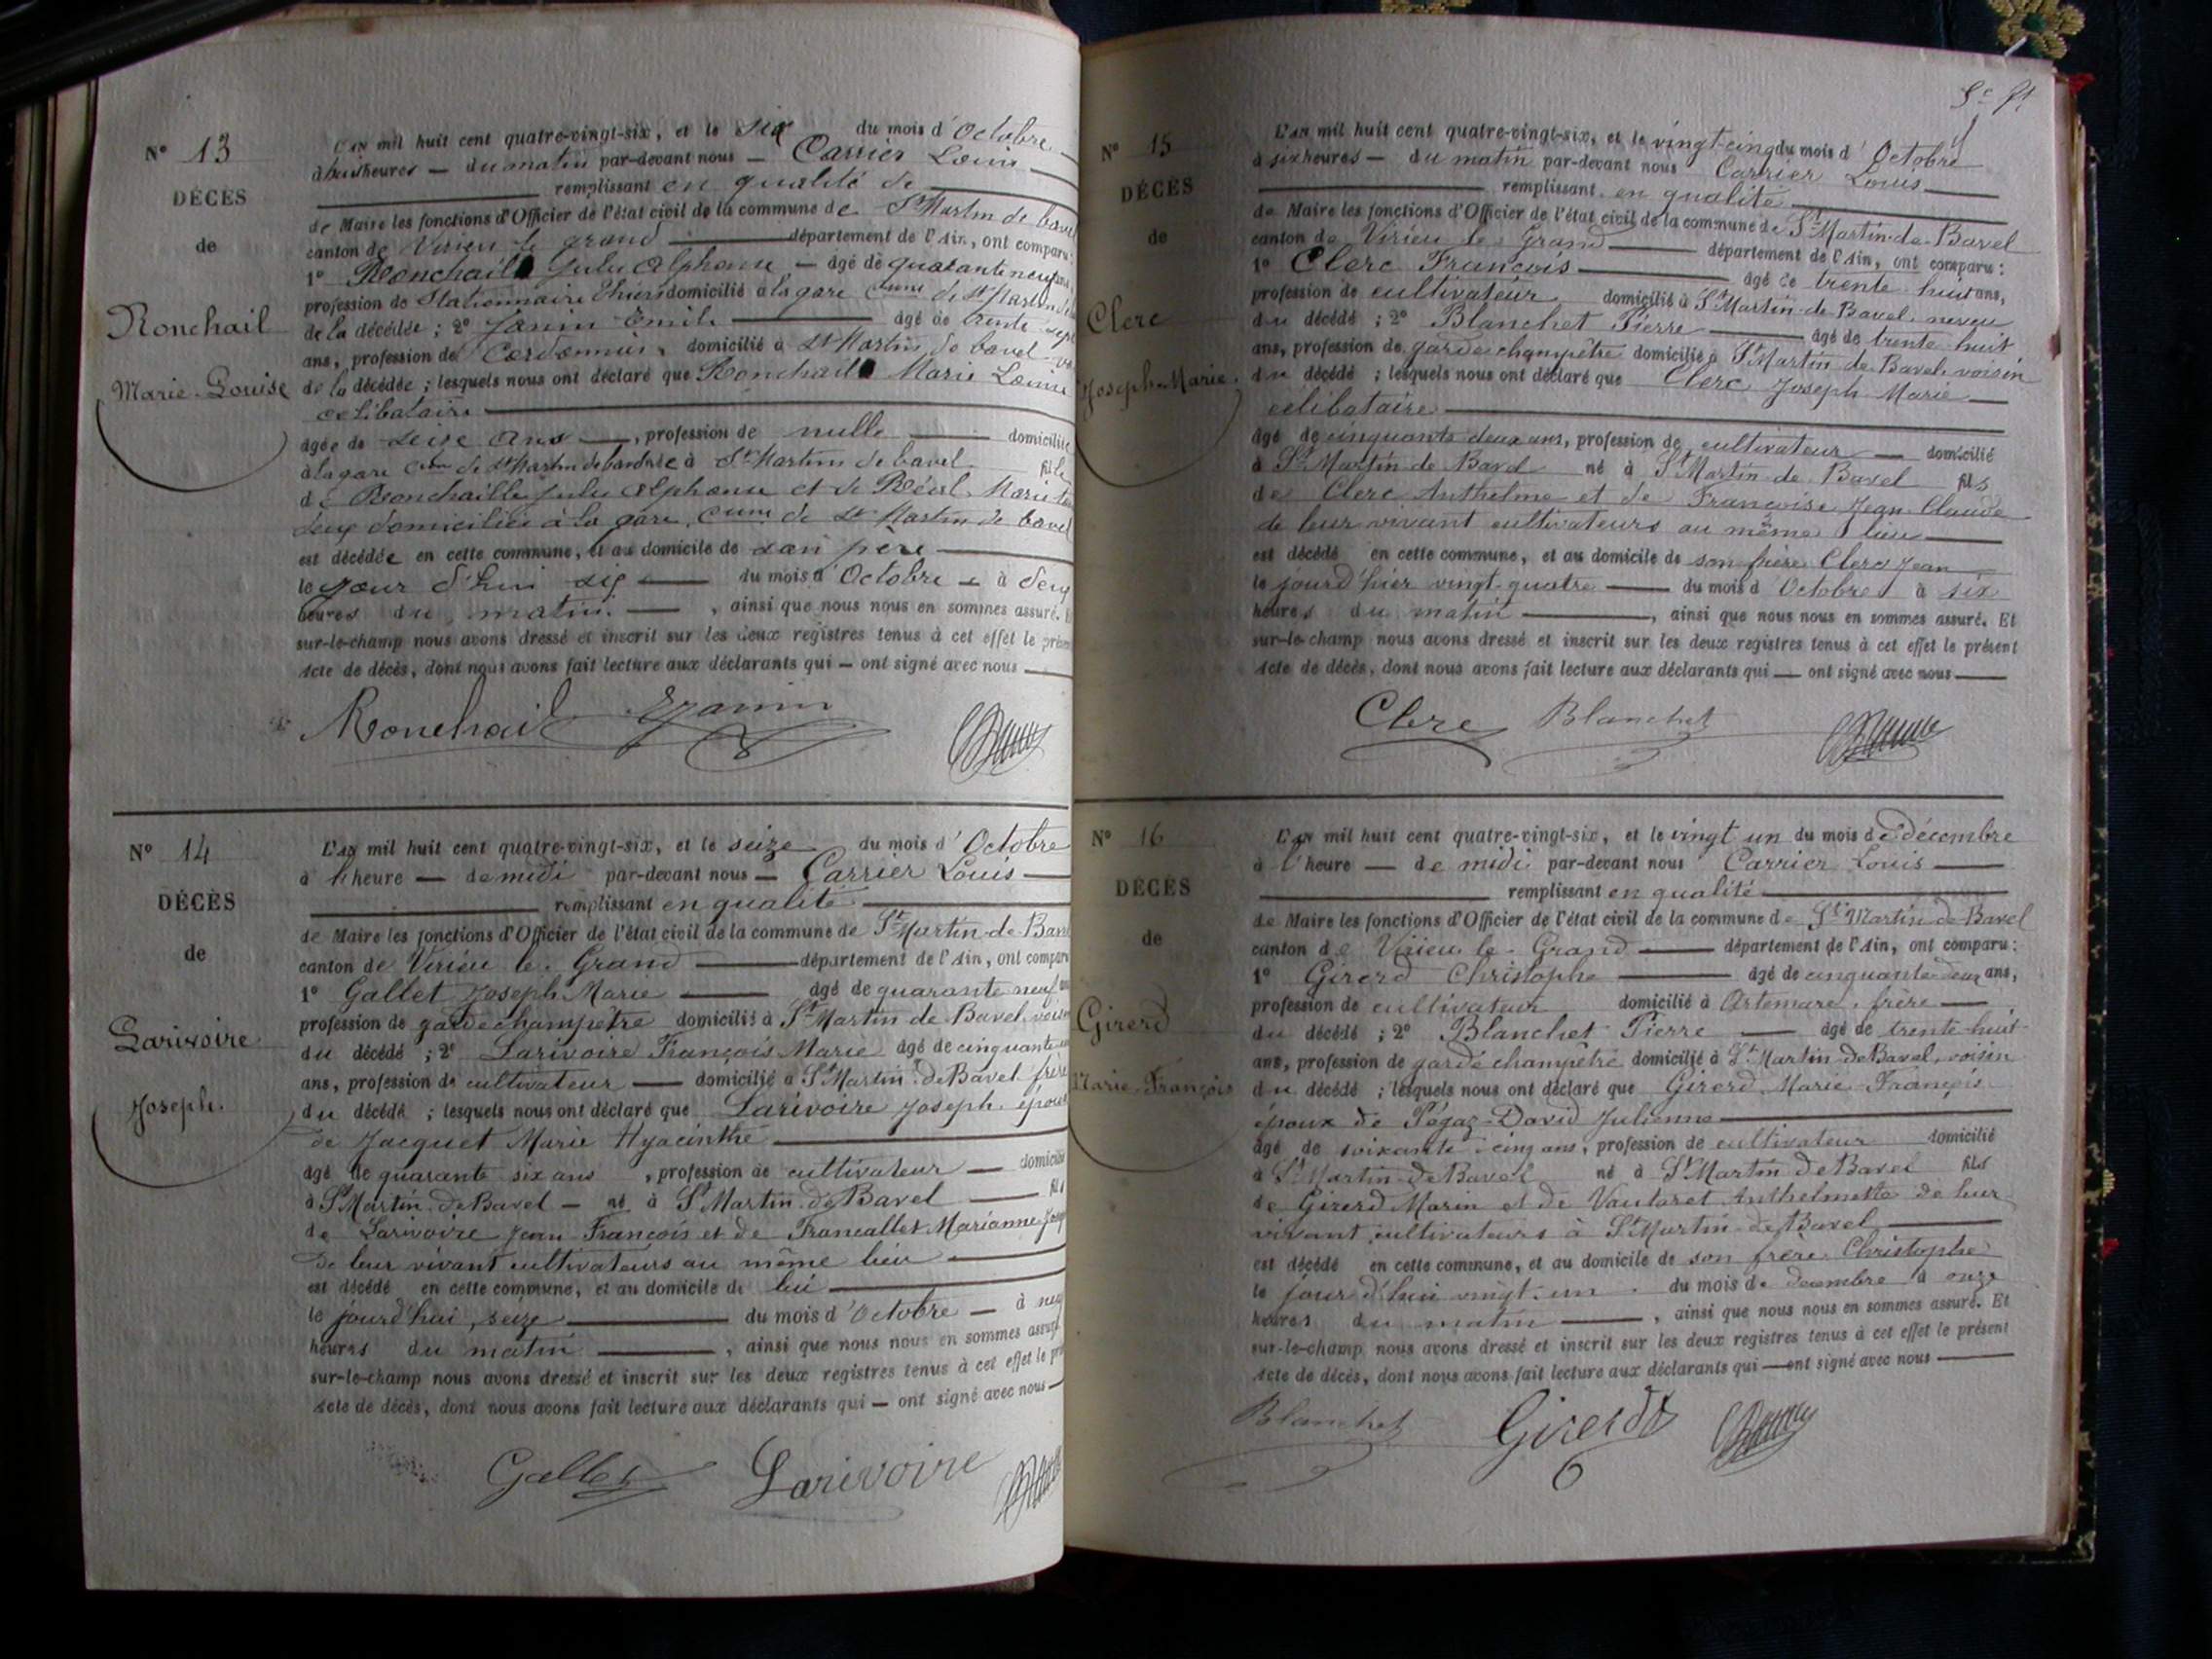 N° 13
DÉCÈS
de
Ronchail
Marie-Louise
L'an mil huit cent quatre-vingt-six, et le six du mois d'Octobre
à huit heures — du matin par-devant nous — Carrier Louis
remplissant en qualité de
de Maire les fonctions d'Officier de l'état civil de la commune de St Martin de bavel
canton de Virieu le grand département de l'Ain, ont comparu:
1° Ronchail Jules Alphonse — âgé de quarante neuf ans,
profession de Stationnaire domicilié à la gare Cune de St Martin de
de la décédée ; 2° Janin Emile âgé de trente sept
ans, profession de Cordonnier, domicilié à St Martin de bavel
de la décédée ; lesquels nous ont déclaré que Ronchail Marie Louise
celibataire
âgée de seize ans —, profession de nulle domicilié
à la gare Cune de St Martin de bavel née à St Martin de bavel fille
de Ronchaille Jules Alphonse et de Réal Marie
deux domiciliés à la gare, Cune de St Martin de bavel
est décédée en cette commune, et au domicile de son père
le jour d'hui six du mois d'Octobre — à deux
heures du matin. —, ainsi que nous nous en sommes assuré. Et
sur-le-champ nous avons dressé et inscrit sur les deux registres tenus à cet effet le présent
acte de décès, dont nous avons fait lecture aux déclarants qui — ont signé avec nous
Ronchail EJanin
N° 14
DÉCÈS
de
Larivoire
Joseph.
L'an mil huit cent quatre-vingt-six, et le seize du mois d'Octobre
à 1 heure — de midi par-devant nous — Carrier Louis —
remplissant en qualité
de Maire les fonctions d'Officier de l'état civil de la commune de St Martin-de-Bavel
canton de Virieu le Grand département de l'Ain, ont comparu
1° Gallet Joseph Marie âgé de quarante neuf ans
profession de garde champêtre domicilié à St Martin de Bavel, voisin
du décédé ; 2° Larivoire François Marie âgé de cinquante
ans, profession de cultivateur — domicilié à St Martin de Bavel frère
du décédé ; lesquels nous ont déclaré que Larivoire Joseph, époux
de Jacquet Marie Hyacinthe
âgé de quarante six ans, profession de cultivateur — domicilié
à St Martin de Bavel — né à St Martin de Bavel fils
de Larivoire Jean François et de Francallet Marianne
de leur vivant cultivateurs au même lieu
est décédé en cette commune, et au domicile de lui
le jourd'hui, seize du mois d'Octobre — à neuf
heures du matin, ainsi que nous nous en sommes assuré
sur-le-champ nous avons dressé et inscrit sur les deux registres tenus à cet effet le
acte de décès, dont nous avons fait lecture aux déclarants qui — ont signé avec nous —
Gallet Larivoire
N° 15
DÉCÈS
de
Clerc
Joseph-Marie.
L'an mil huit cent quatre-vingt-six, et le vingt-cinq du mois d'Octobre
à six heures — du matin par-devant nous Carrier Louis
remplissant en qualité
de Maire les fonctions d'Officier de l'état civil de la commune de St Martin-de-Bavel
canton de Virieu le Grand département de l'Ain, ont comparu:
1° Clerc François âgé de trente huit ans,
profession de cultivateur domicilié à St Martin de Bavel, neveu
du décédé ; 2° Blanchet Pierre âgé de trente huit
ans, profession de garde champêtre domicilié à St Martin de Bavel, voisin
du décédé ; lesquels nous ont déclaré que Clerc Joseph Marie —
celibataire
âgé de cinquante deux ans, profession de cultivateur — domicilié
à St Martin de Bavel né à St Martin de Bavel fils
de Clerc Anthelme et de Françoise Jean-Claude
de leur vivant cultivateurs au même lieu
est décédé en cette commune, et au domicile de son frère Clerc Jean
le jourd'hier vingt quatre du mois d'Octobre à six
heures du matin, ainsi que nous nous en sommes assuré. Et
sur-le-champ nous avons dressé et inscrit sur les deux registres tenus à cet effet le présent
acte de décès, dont nous avons fait lecture aux déclarants qui — ont signé avec nous
Clerc Blanchet
N° 16
DÉCÈS
de
Girerd
Marie-François
L'an mil huit cent quatre-vingt-six, et le vingt un du mois de décembre
à 1 heure — de midi par-devant nous Carrier Louis
remplissant en qualité
de Maire les fonctions d'Officier de l'état civil de la commune de St Martin-de-Bavel
canton de Virieu le Grand département de l'Ain, ont comparu:
1° Girerd Christophe âgé de cinquante deux ans,
profession de cultivateur domicilié à Artemare, frère —
du décédé ; 2° Blanchet Pierre — âgé de trente-huit
ans, profession de garde champêtre domicilié à St Martin de Bavel, voisin
du décédé ; lesquels nous ont déclaré que Girerd Marie-François
époux de Pégaz-David Julienne
âgé de soixante-cinq ans, profession de cultivateur domicilié
à St Martin de Bavel né à St Martin de Bavel fils
de Girerd Marin et de Vautaret Anthelmette de leur
vivant cultivateurs à St Martin de Bavel
est décédé en cette commune, et au domicile de son frère Christophe
le jour d'hui vingt-un du mois de décembre à onze
heures du matin, ainsi que nous nous en sommes assuré. Et
sur-le-champ nous avons dressé et inscrit sur les deux registres tenus à cet effet le présent
acte de décès, dont nous avons fait lecture aux déclarants qui — ont signé avec nous
Blanchet Girerd